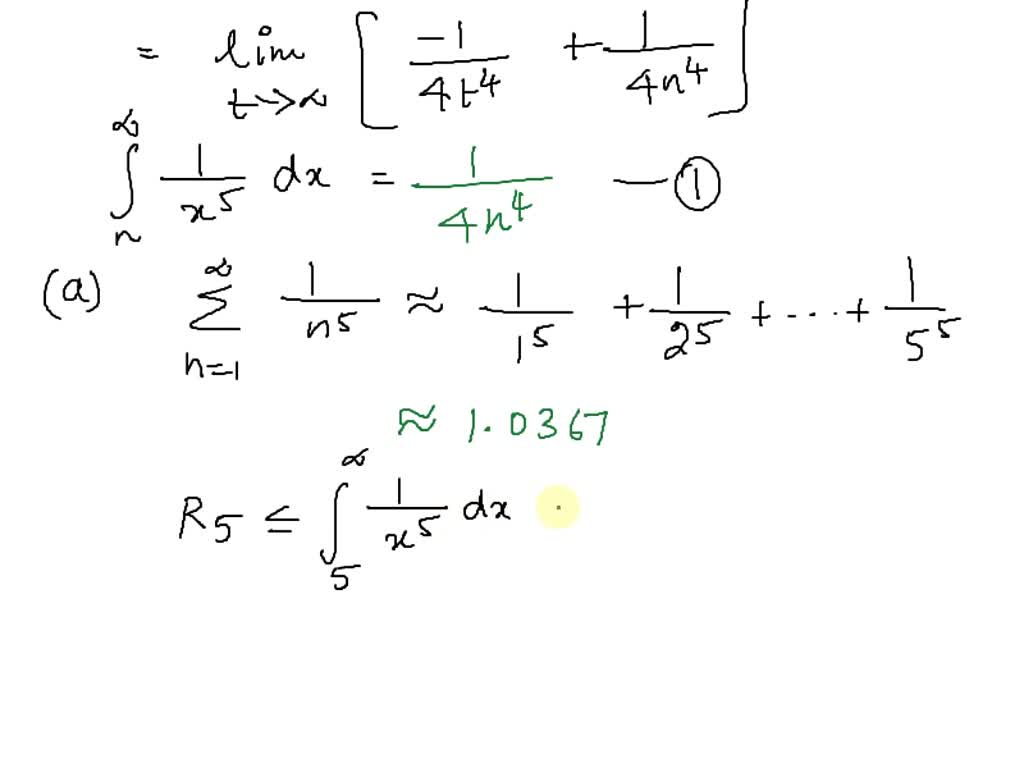 = lim t->∞ [ -1/4t^4 + 1/4n^4 ]
∫_n^∞ 1/x^5 dx = 1/4n^4 — ①
(a) ∑_{n=1}^∞ 1/n^5 ≈ 1/1^5 + 1/2^5 + ... + 1/5^5
≈ 1.0367
R5 ≤ ∫_5^∞ 1/x^5 dx